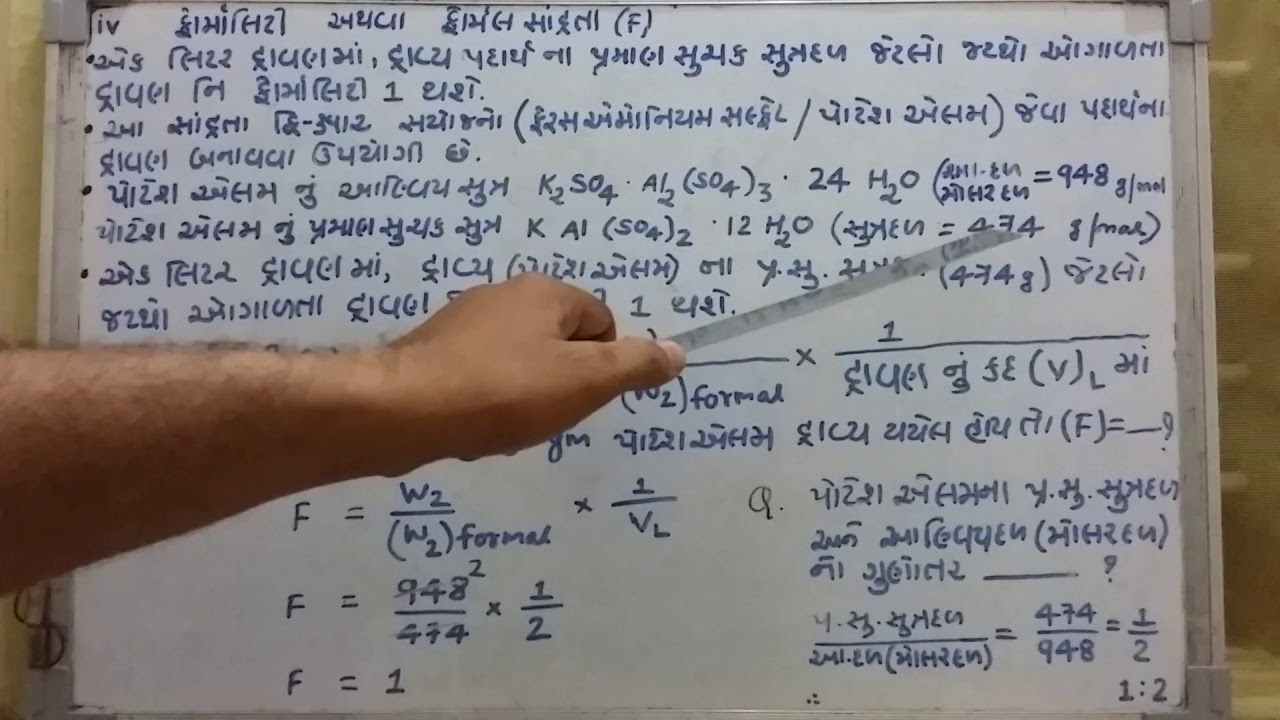 iv ફોર્માલિટી અથવા ફોર્મલ સાંદ્રતા (F)
• એક લિટર દ્રાવણમાં, દ્રાવ્ય પદાર્થ ના પ્રમાણ સુચક સુત્રદળ જેટલો જથ્થો ઓગાળતા
દ્રાવણ નિ ફોર્માલિટી 1 થશે.
• આ સાંદ્રતા દ્વિ-ક્ષાર સંયોજનો (ફેરસએમોનિયમ સલ્ફેટ / પોટેશ એલમ) જેવા પદાર્થના
દ્રાવણ બનાવવા ઉપયોગી છે.
• પોટેશ એલમ નું આણ્વિય સુત્ર K₂SO₄ · Al₂(SO₄)₃ · 24 H₂O (આ.દળ મોલરદળ = 948 g/mol
પોટેશ એલમ નું પ્રમાણ સુચક સુત્ર K Al (SO₄)₂ · 12 H₂O (સુત્રદળ = 474 g/mol)
• એક લિટર દ્રાવણમાં, દ્રાવ્ય (પોટેશ એલમ) ના પ્ર.સુ. (474g) જેટલો
જથ્થો ઓગાળતા દ્રાવણ 1 થશે.
× 1 / દ્રાવણ નું કદ (V)L માં
(W₂)formal
gm પોટેશએલમ દ્રાવ્ય થયેલ હોય તો (F)=__?
F = W₂ / (W₂)formal × 1 / VL
F = 948 2 / 474 × 1 / 2
F = 1
Q. પોટેશ એલમના પ્ર.સુ.સુત્રદળ
અને આણ્વિયદળ (મોલરદળ)
નો ગુણોતર ____ ?
પ્ર.સુ.સુત્રદળ / આ.દળ(મોલરદળ) = 474 / 948 = 1 / 2
∴ 1:2